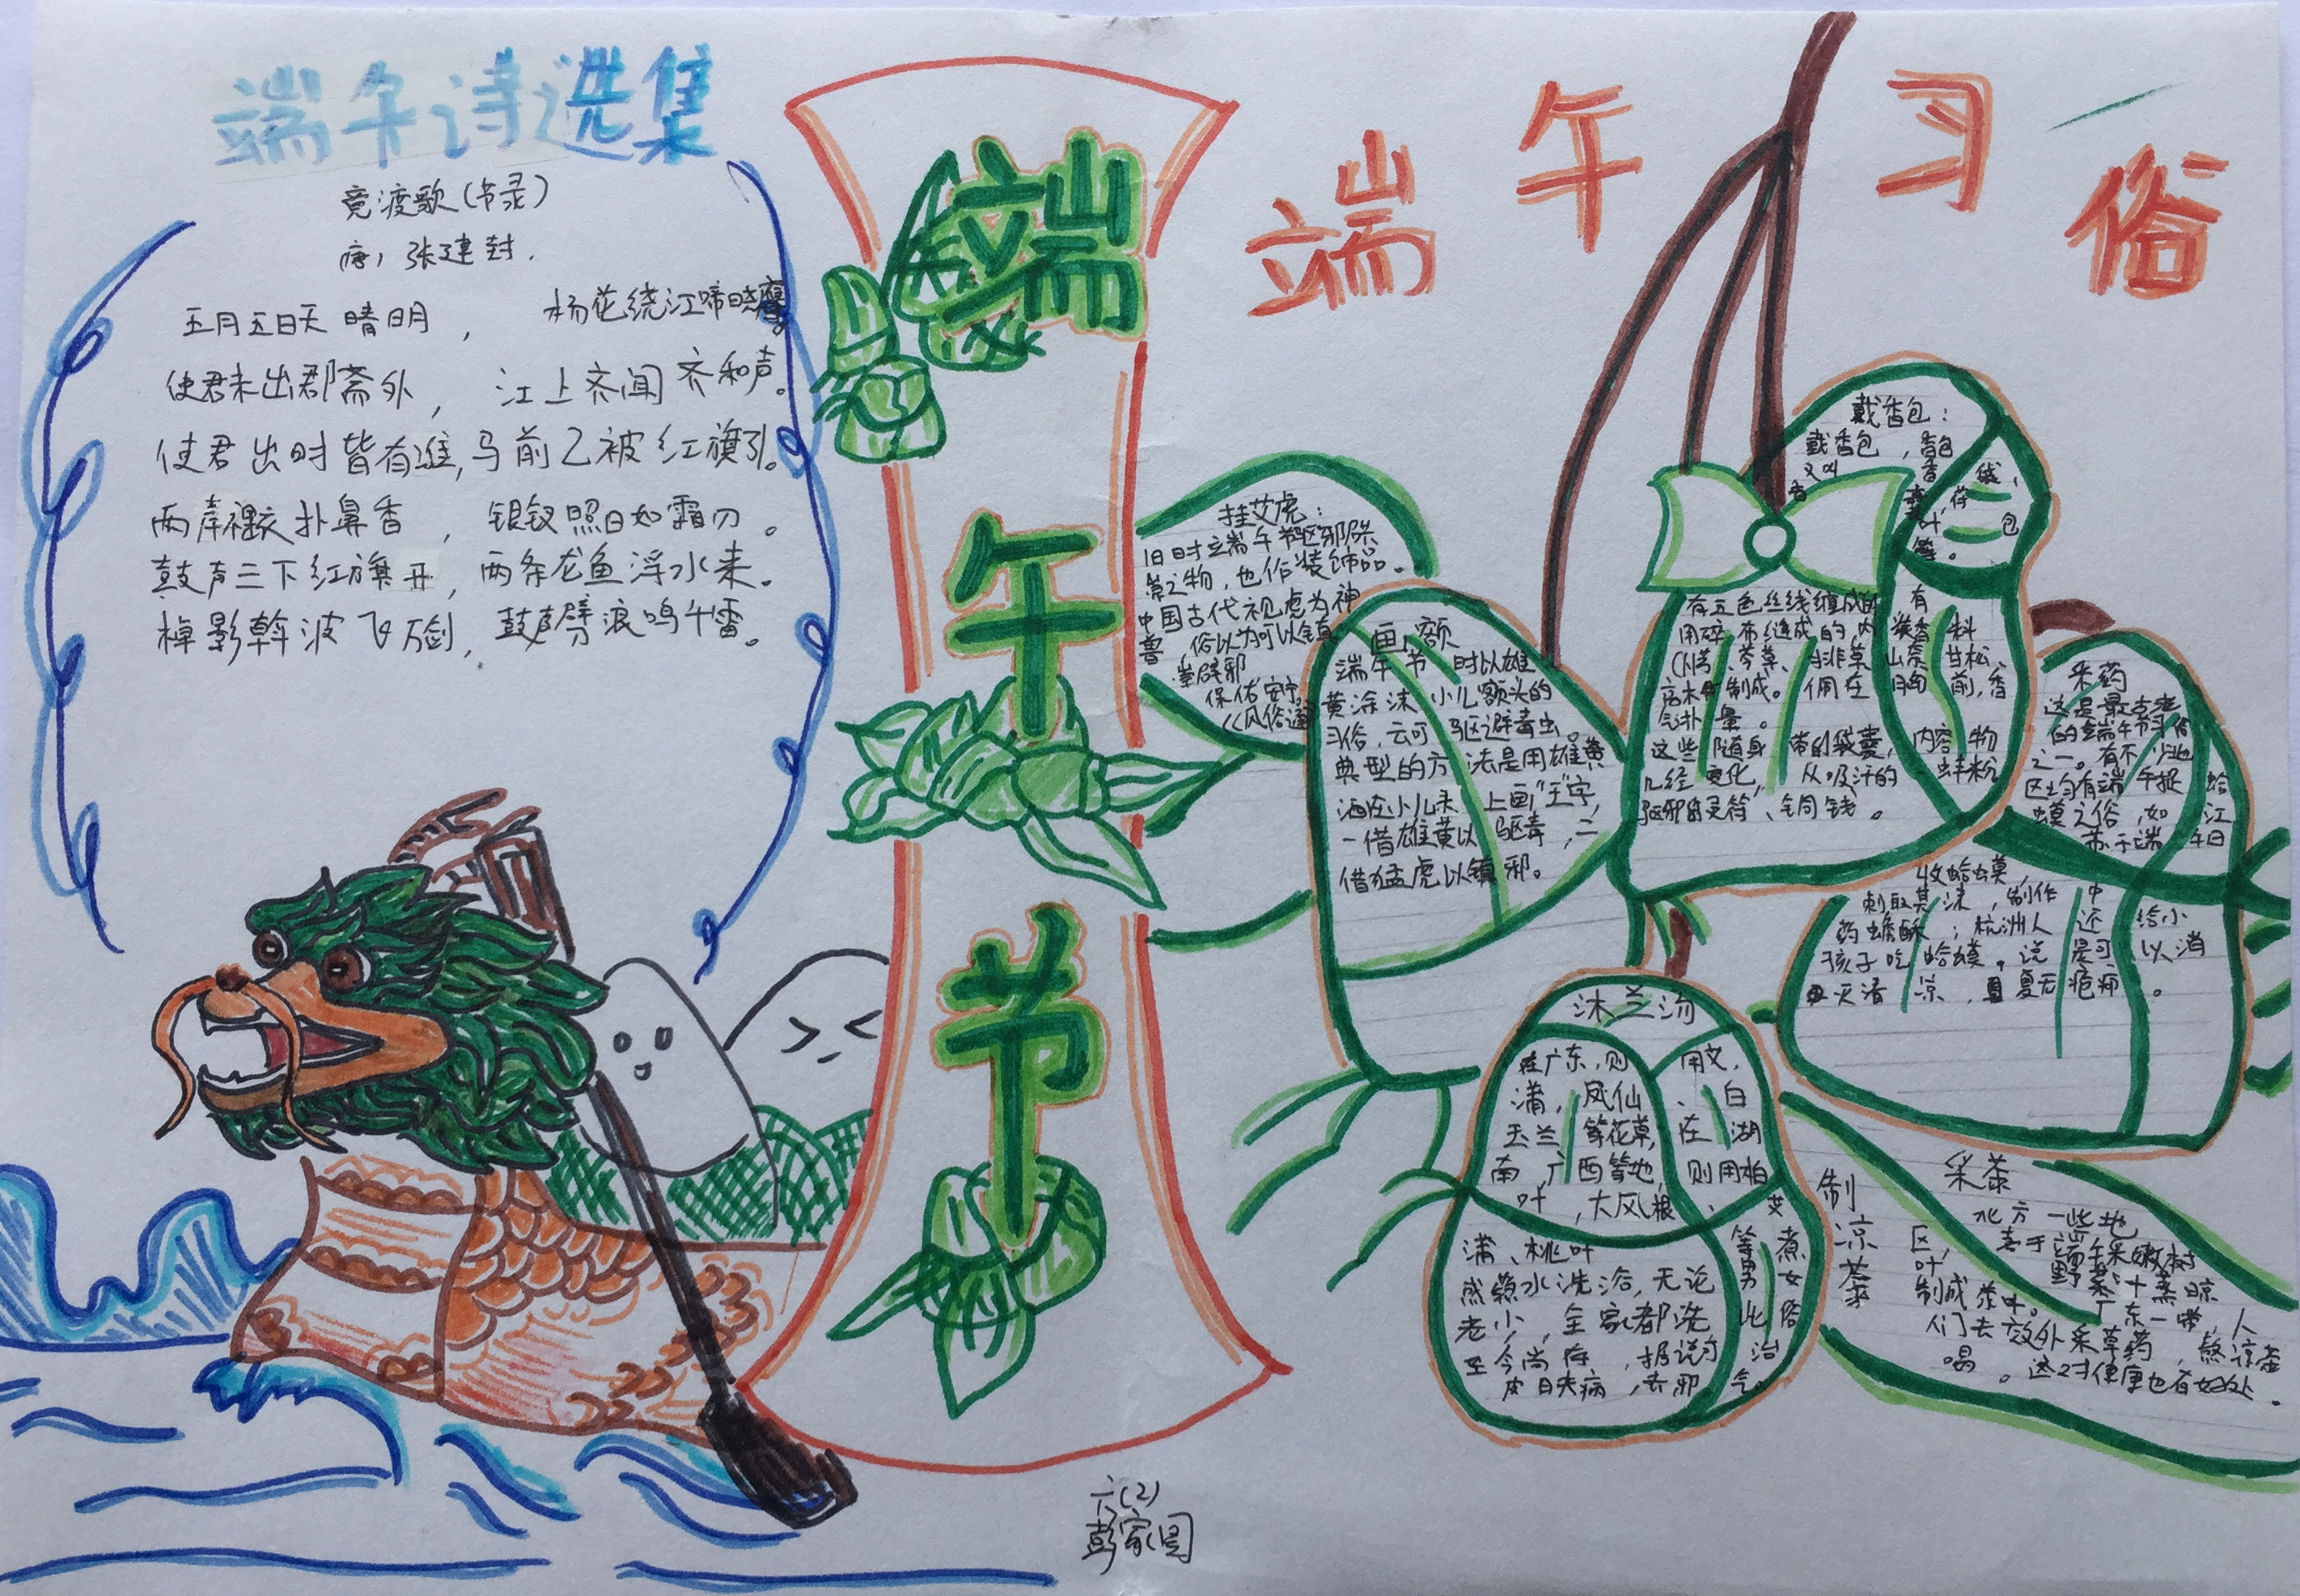 端午诗选集
竞渡歌(节录)
唐，张建封.
五月五日天晴明， 杨花绕江啼晓鹰。
使君未出郡斋外， 江上齐闻齐和声。
使君出时皆有准,马前乙被红旗引。
两岸 扑鼻香 ， 银钗照日如霜刀 。
鼓声三下红旗开, 两条龙鱼浮水来。
棹影斡波飞万剑, 鼓声劈浪鸣千雷。
端
午
节
六(2)
端午习俗
挂艾虎：
旧时 端午节驱邪
祟之物，也作装饰品。
中国古代视虎为神
兽，俗以为可以镇
祟辟邪
保佑安宁。
《风俗通
画额
端午节 时以雄
黄涂沫 小儿额头的
习俗，云可 驱避毒虫。
典型的方 法是用雄黄
酒在小儿 上画"王"字，
一借雄黄以 驱毒 ，二
借猛虎以镇 邪。
戴香包：
戴香包 ，香包
又叫 香 袋、
香 囊、荷 包
等 。
有五色丝线缠成的 有
用碎 布缝成的 内 装香 料
芳草、 排草 山奈、 甘松、
高本 制成。 佩在 胸 前，香
气扑 鼻 。
这些 随身 带的袋囊， 内容 物
几经 变化， 从吸汗的 蚌粉、
驱邪 灵符 、铜钱 。
采药
这是最古老
的端午节习俗
之一。有不少地
区均有端 午捉 蛤
蟆之俗 ，如 江
苏于端 午日
收蛤蟆，
刺取其 沫 ，制作 中
药蟾酥；杭洲人 还 给小
孩子吃 蛤蟆。说 是可 以消
火清 凉 ， 夏无疮疖 。
沐兰汤
在广东，则 用艾，
蒲，凤仙 、白
玉兰 等花草， 在 湖
南，广西等地， 则用柏
叶 ，大风根 、 艾
蒲、桃叶 等 煮
成药水洗浴，无论 男 女
老小 ，全 家都洗 此 俗
至今尚存 ，据说可 治
皮肤病 ，去邪 气。
制凉茶
采茶
北方一些地
区，喜于端午采嫩树
叶 野菜 蒸晾
制成 茶叶。 广东一带，人
们去郊外采草药，熬凉茶
喝 。这对健康也有好处 。